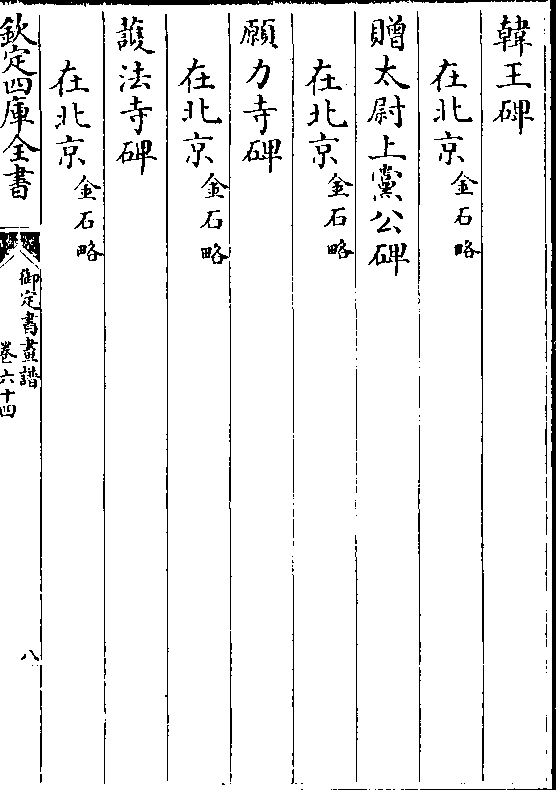 韓王碑
在北京金石略
贈太尉上黨公碑
在北京金石略
願力寺碑
在北京金石略
護法寺碑
在北京金石略
欽定四庫全書
御定書畫譜
卷六十四
八